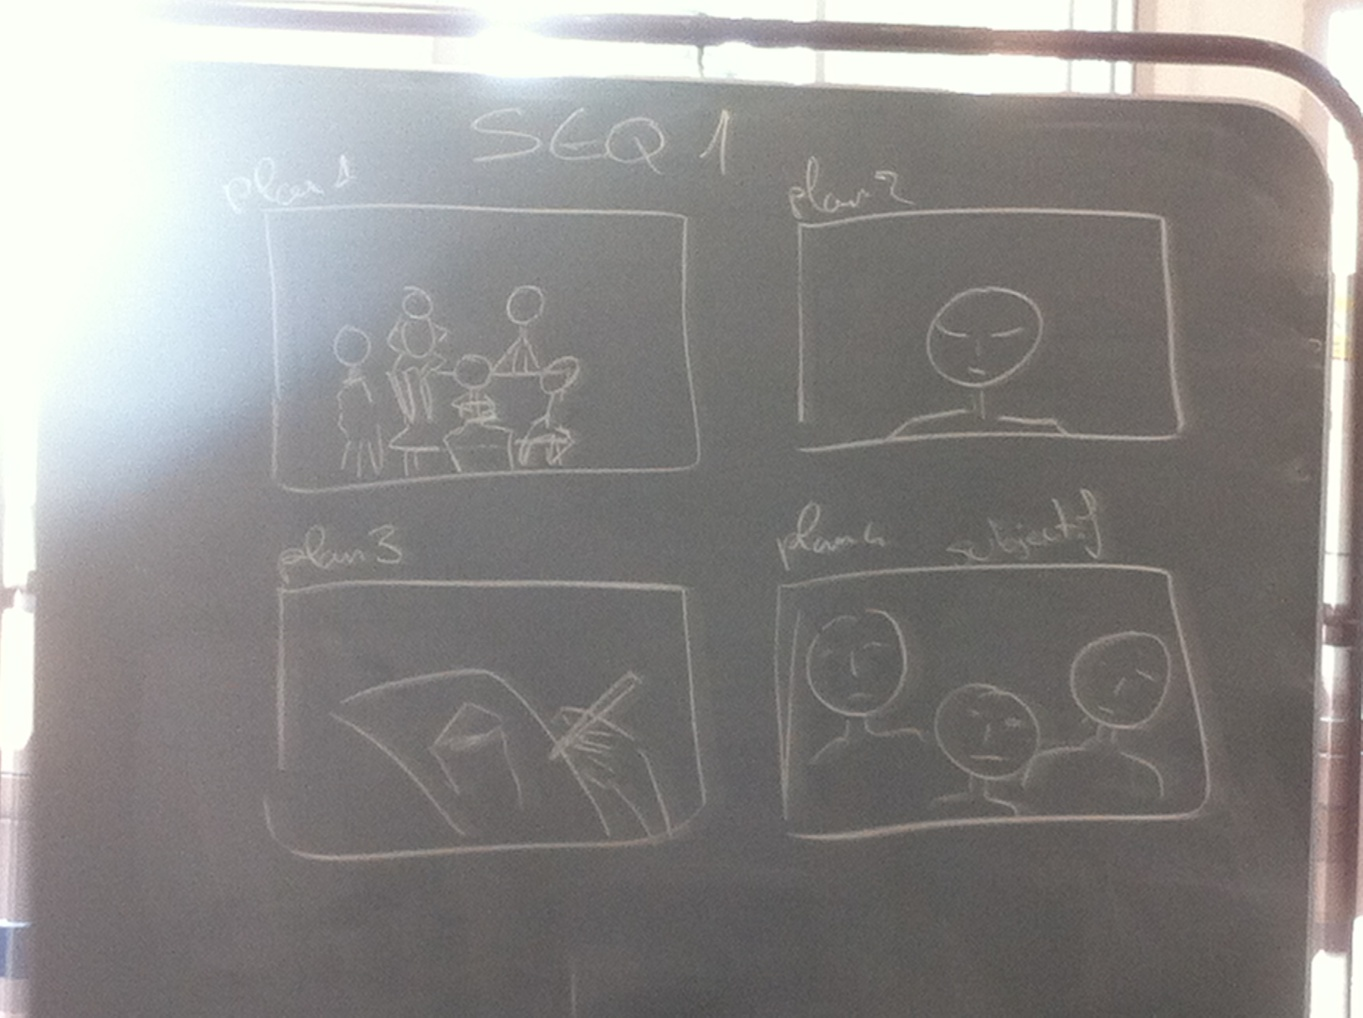 SEQ 1
plan 1
plan 2
plan 3
plan 4 subjectif